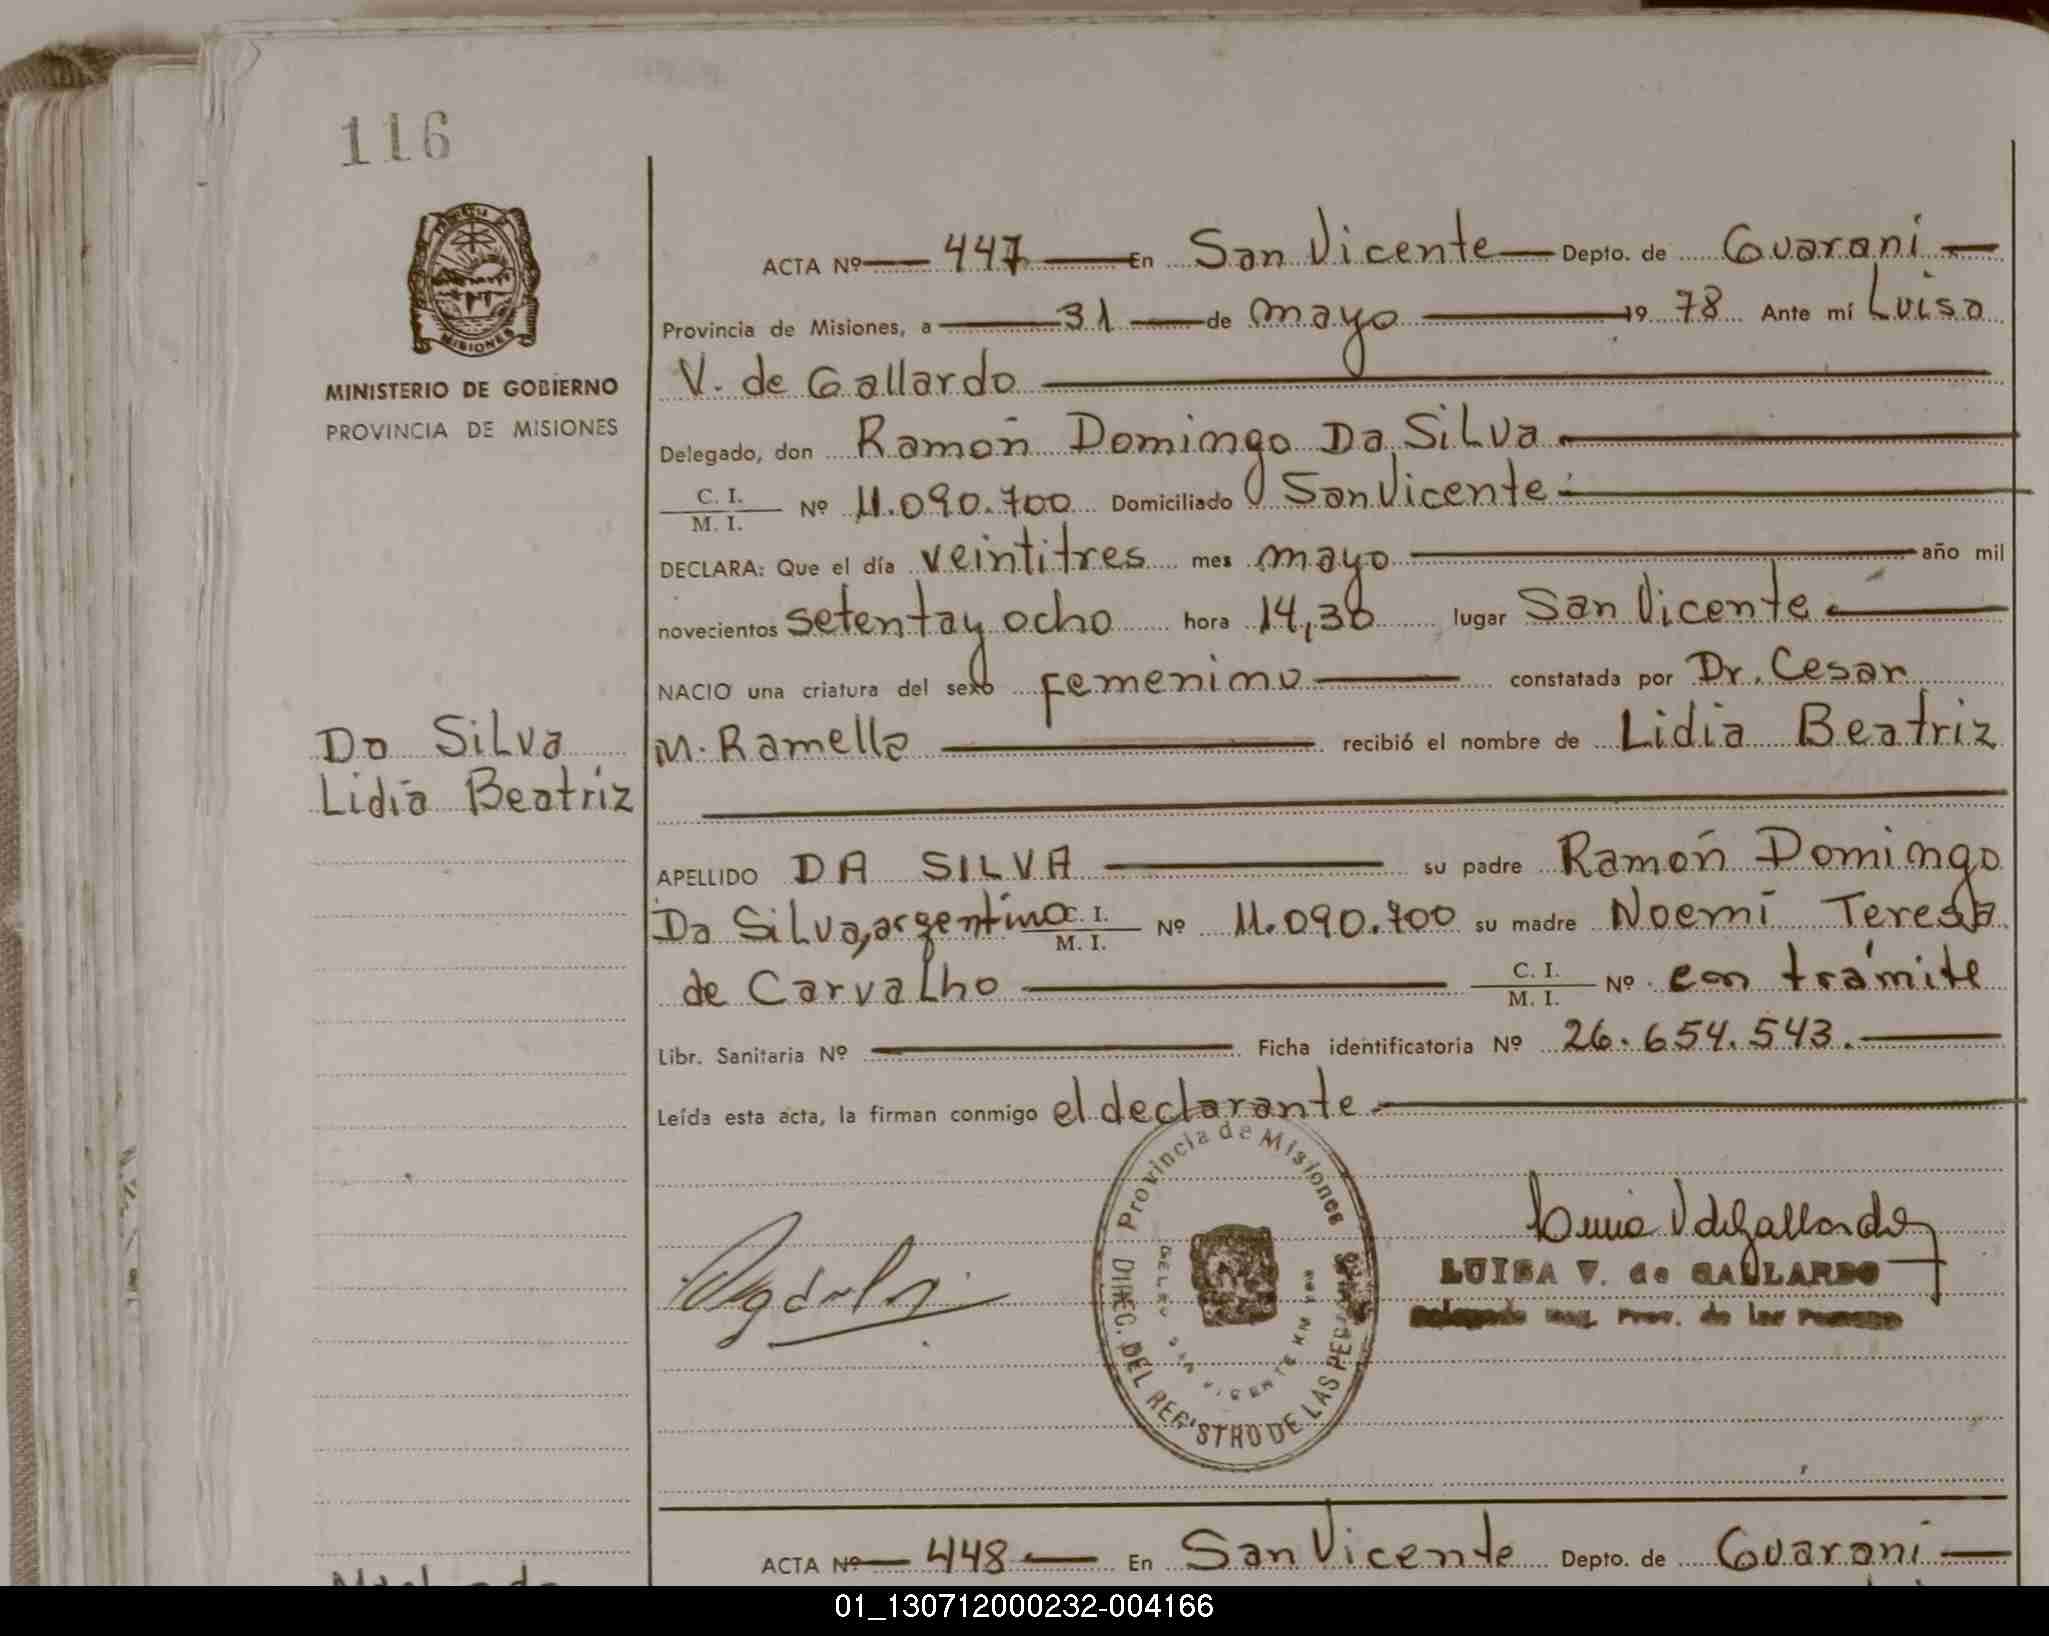 116
MISIONES
MINISTERIO DE GOBIERNO
PROVINCIA DE MISIONES
ACTA Nº 447 En San Vicente Depto. de Guarani
Provincia de Misiones, a 31 de mayo 19 78 Ante mí Luisa
V. de Gallardo
Delegado, don Ramón Domingo Da Silva
C. I. / M. I. Nº 11.090.700 Domiciliado San Vicente
DECLARA: Que el día veintitres mes mayo año mil
novecientos setenta y ocho hora 14,30 lugar San Vicente
NACIO una criatura del sexo femenino constatada por Dr. Cesar
M. Ramella recibió el nombre de Lidia Beatriz
Da Silva
Lidia Beatriz
APELLIDO DA SILVA su padre Ramón Domingo
Da Silva, argentino C. I. / M. I. Nº 11.090.700 su madre Noemí Teresa
de Carvalho C. I. / M. I. Nº en trámite
Libr. Sanitaria Nº Ficha identificatoria Nº 26.654.543.
Leída esta acta, la firman conmigo el declarante
Provincia de Misiones
DIREC. DEL REGISTRO DE LAS
SAN VICENTE KM
Luisa V de Gallardo
LUISA V. de GALLARDO
Prov. de las
ACTA Nº 448 En San Vicente Depto. de Guarani
01_130712000232-004166